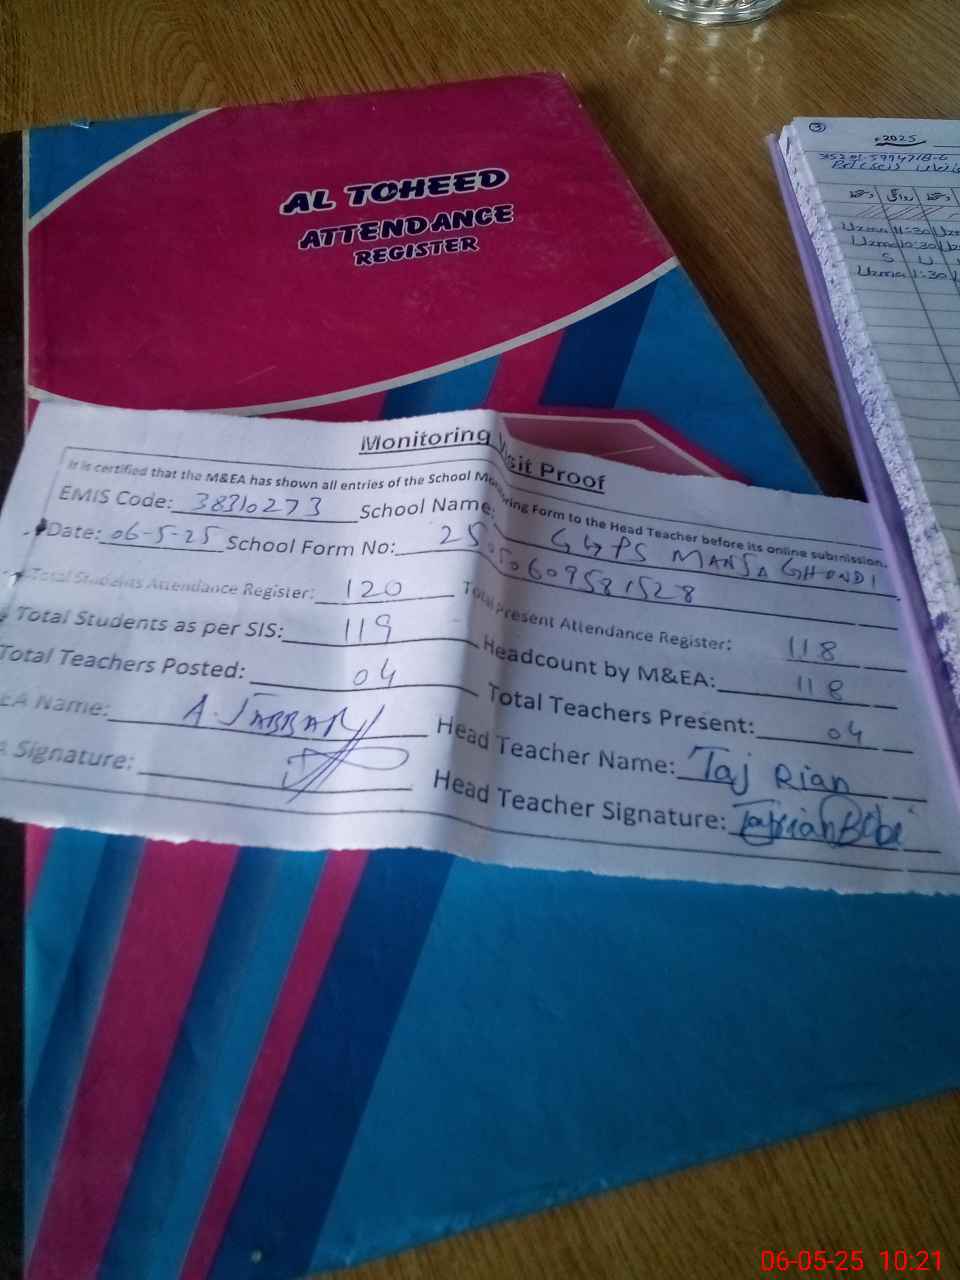 AL TOHEED
ATTENDANCE
REGISTER
3
2025
Uzma 11:30
Uzma
S U
Uzma 1:30
Monitoring Visit Proof
It is certified that the M&EA has shown all entries of the School Monitoring Form to the Head Teacher before its online submission.
EMIS Code: 38310273 School Name: GGPS MANSA GHONDI
Date: 06-5-25 School Form No: 25050609581528
Total Students Attendance Register: 120 Total Present Attendance Register: 118
Total Students as per SIS: 119 Headcount by M&EA: 118
Total Teachers Posted: 04 Total Teachers Present: 04
EA Name: A. JABBAR Head Teacher Name: Taj Rian
Signature: Head Teacher Signature: Tajrian Bibi
06-05-25 10:21